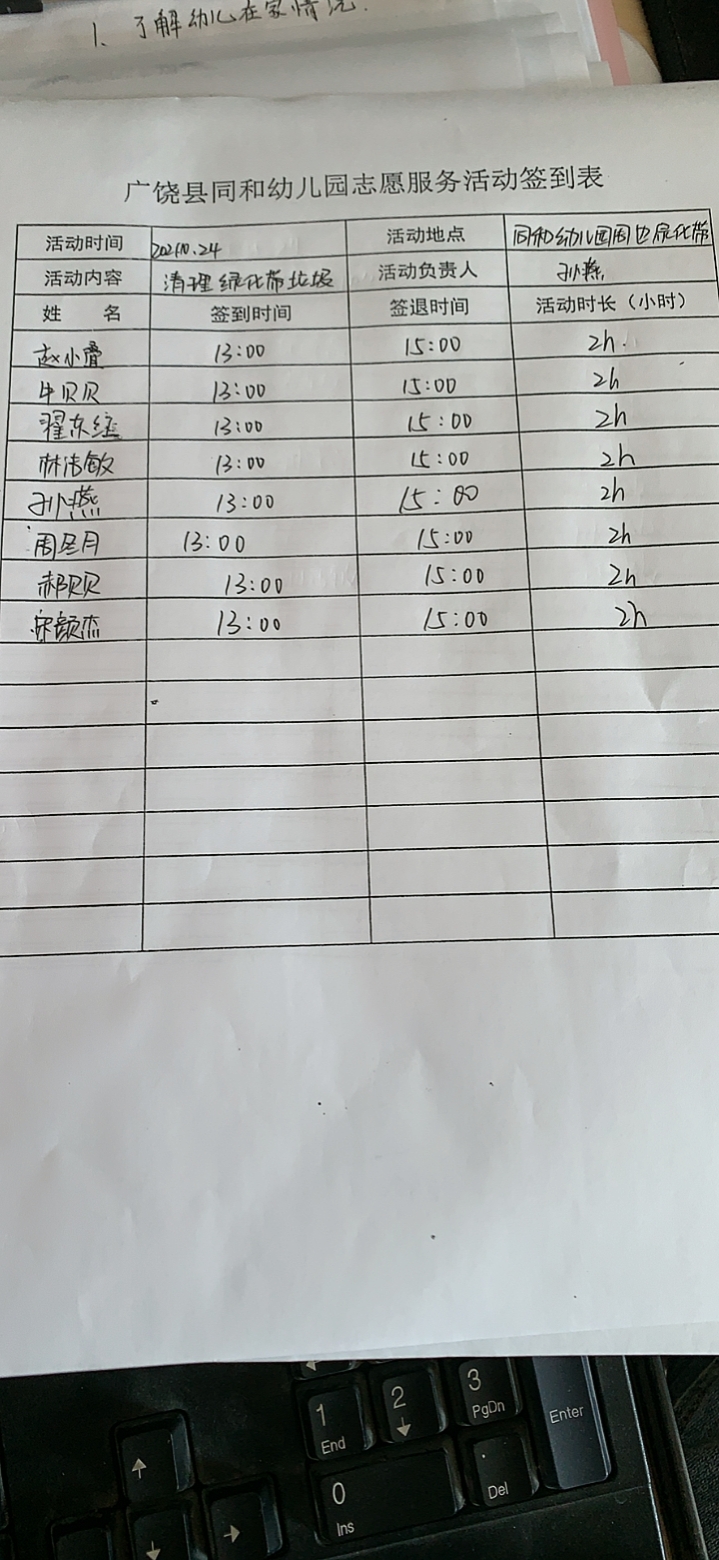 1、了解幼儿在家情况.
广饶县同和幼儿园志愿服务活动签到表
活动时间 2021.10.24 活动地点 同和幼儿园周边绿化带
活动内容 清理绿化带垃圾 活动负责人 孙燕
姓 名 签到时间 签退时间 活动时长（小时）
赵小霞 13:00 15:00 2h.
牛贝贝 13:00 15:00 2h
翟东 13:00 15:00 2h
林洁敏 13:00 15:00 2h
孙燕 13:00 15:00 2h
周昱月 13:00 15:00 2h
郝贝贝 13:00 15:00 2h
颜杰 13:00 15:00 2h
1 End
2
3 PgDn
Enter
0 Ins
. Del